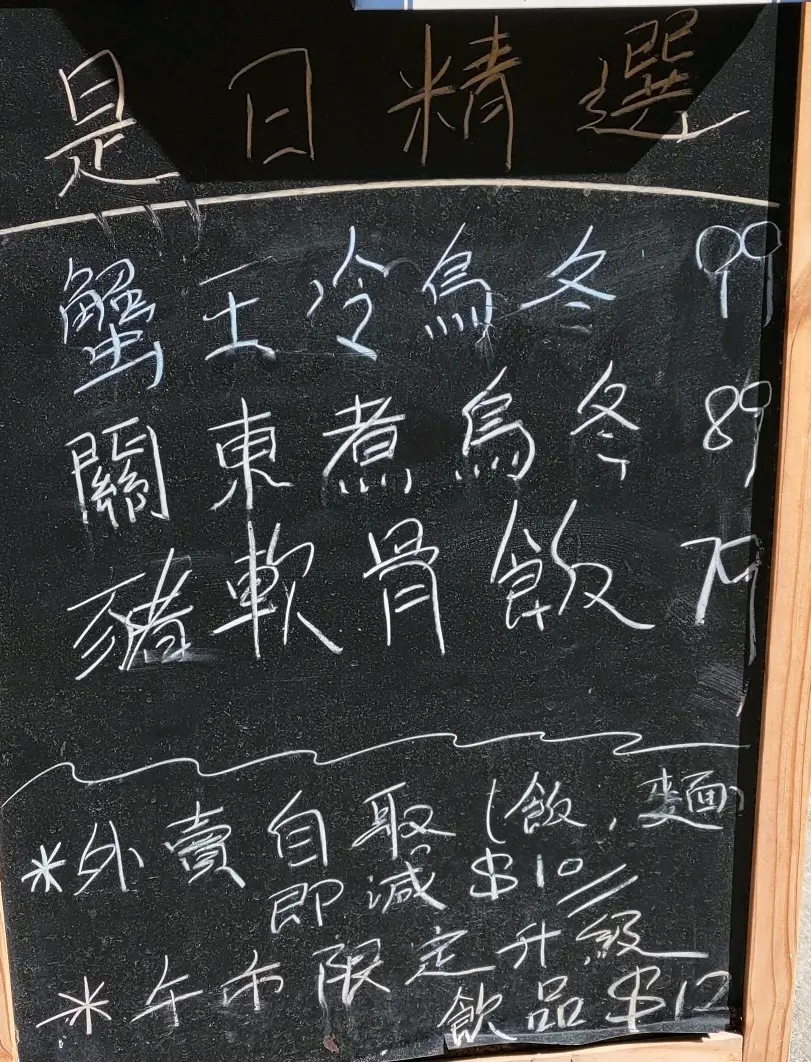 是日精選
蟹王冷烏冬 99
關東煮烏冬 89
豬軟骨飯 79
*外賣自取(飯,麵)
即減$10
*午市限定升級
飲品$12